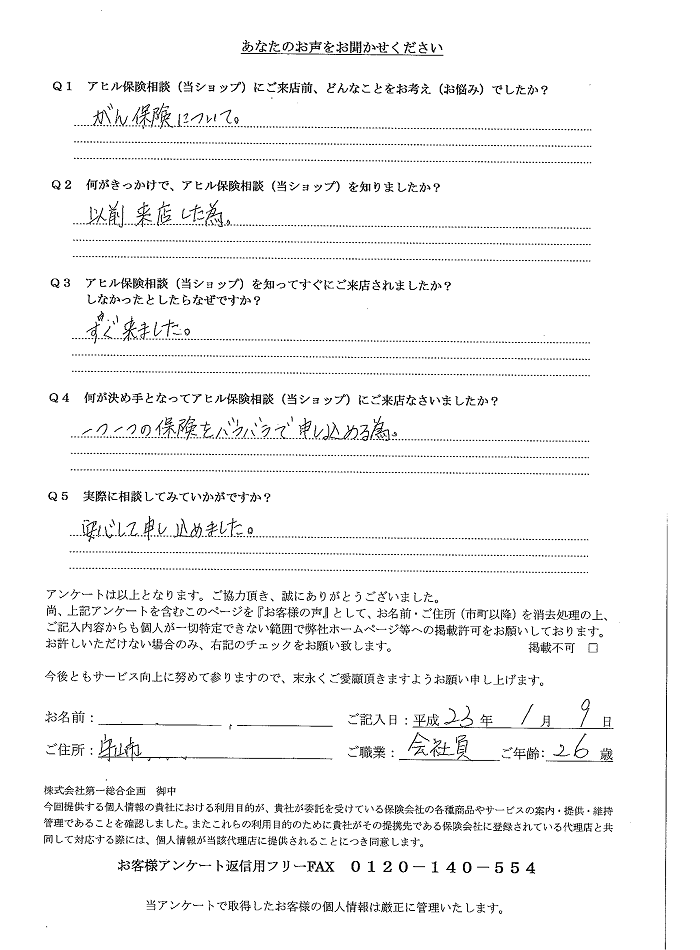 あなたのお声をお聞かせください
Q1 アヒル保険相談（当ショップ）にご来店前、どんなことをお考え（お悩み）でしたか？
がん保険について。
Q2 何がきっかけで、アヒル保険相談（当ショップ）を知りましたか？
以前来店した為。
Q3 アヒル保険相談（当ショップ）を知ってすぐにご来店されましたか？
しなかったとしたらなぜですか？
すぐ来ました。
Q4 何が決め手となってアヒル保険相談（当ショップ）にご来店なさいましたか？
一つ一つの保険をバラバラで申し込める為。
Q5 実際に相談してみていかがですか？
安心して申し込めました。
アンケートは以上となります。ご協力頂き、誠にありがとうございました。
尚、上記アンケートを含むこのページを『お客様の声』として、お名前・ご住所（市町以降）を消去処理の上、
ご記入内容からも個人が一切特定できない範囲で弊社ホームページ等への掲載許可をお願いしております。
お許しいただけない場合のみ、右記のチェックをお願い致します。 掲載不可 □
今後ともサービス向上に努めて参りますので、末永くご愛顧頂きますようお願い申し上げます。
お名前： ご記入日：平成 23 年 1 月 9 日
ご住所：守山市 ご職業：会社員 ご年齢：26 歳
株式会社第一総合企画 御中
今回提供する個人情報の貴社における利用目的が、貴社が委託を受けている保険会社の各種商品やサービスの案内・提供・維持
管理であることを確認しました。またこれらの利用目的のために貴社がその提携先である保険会社に登録されている代理店と共
同して対応する際には、個人情報が当該代理店に提供されることにつき同意します。
お客様アンケート返信用フリーFAX 0120－140－554
当アンケートで取得したお客様の個人情報は厳正に管理いたします。